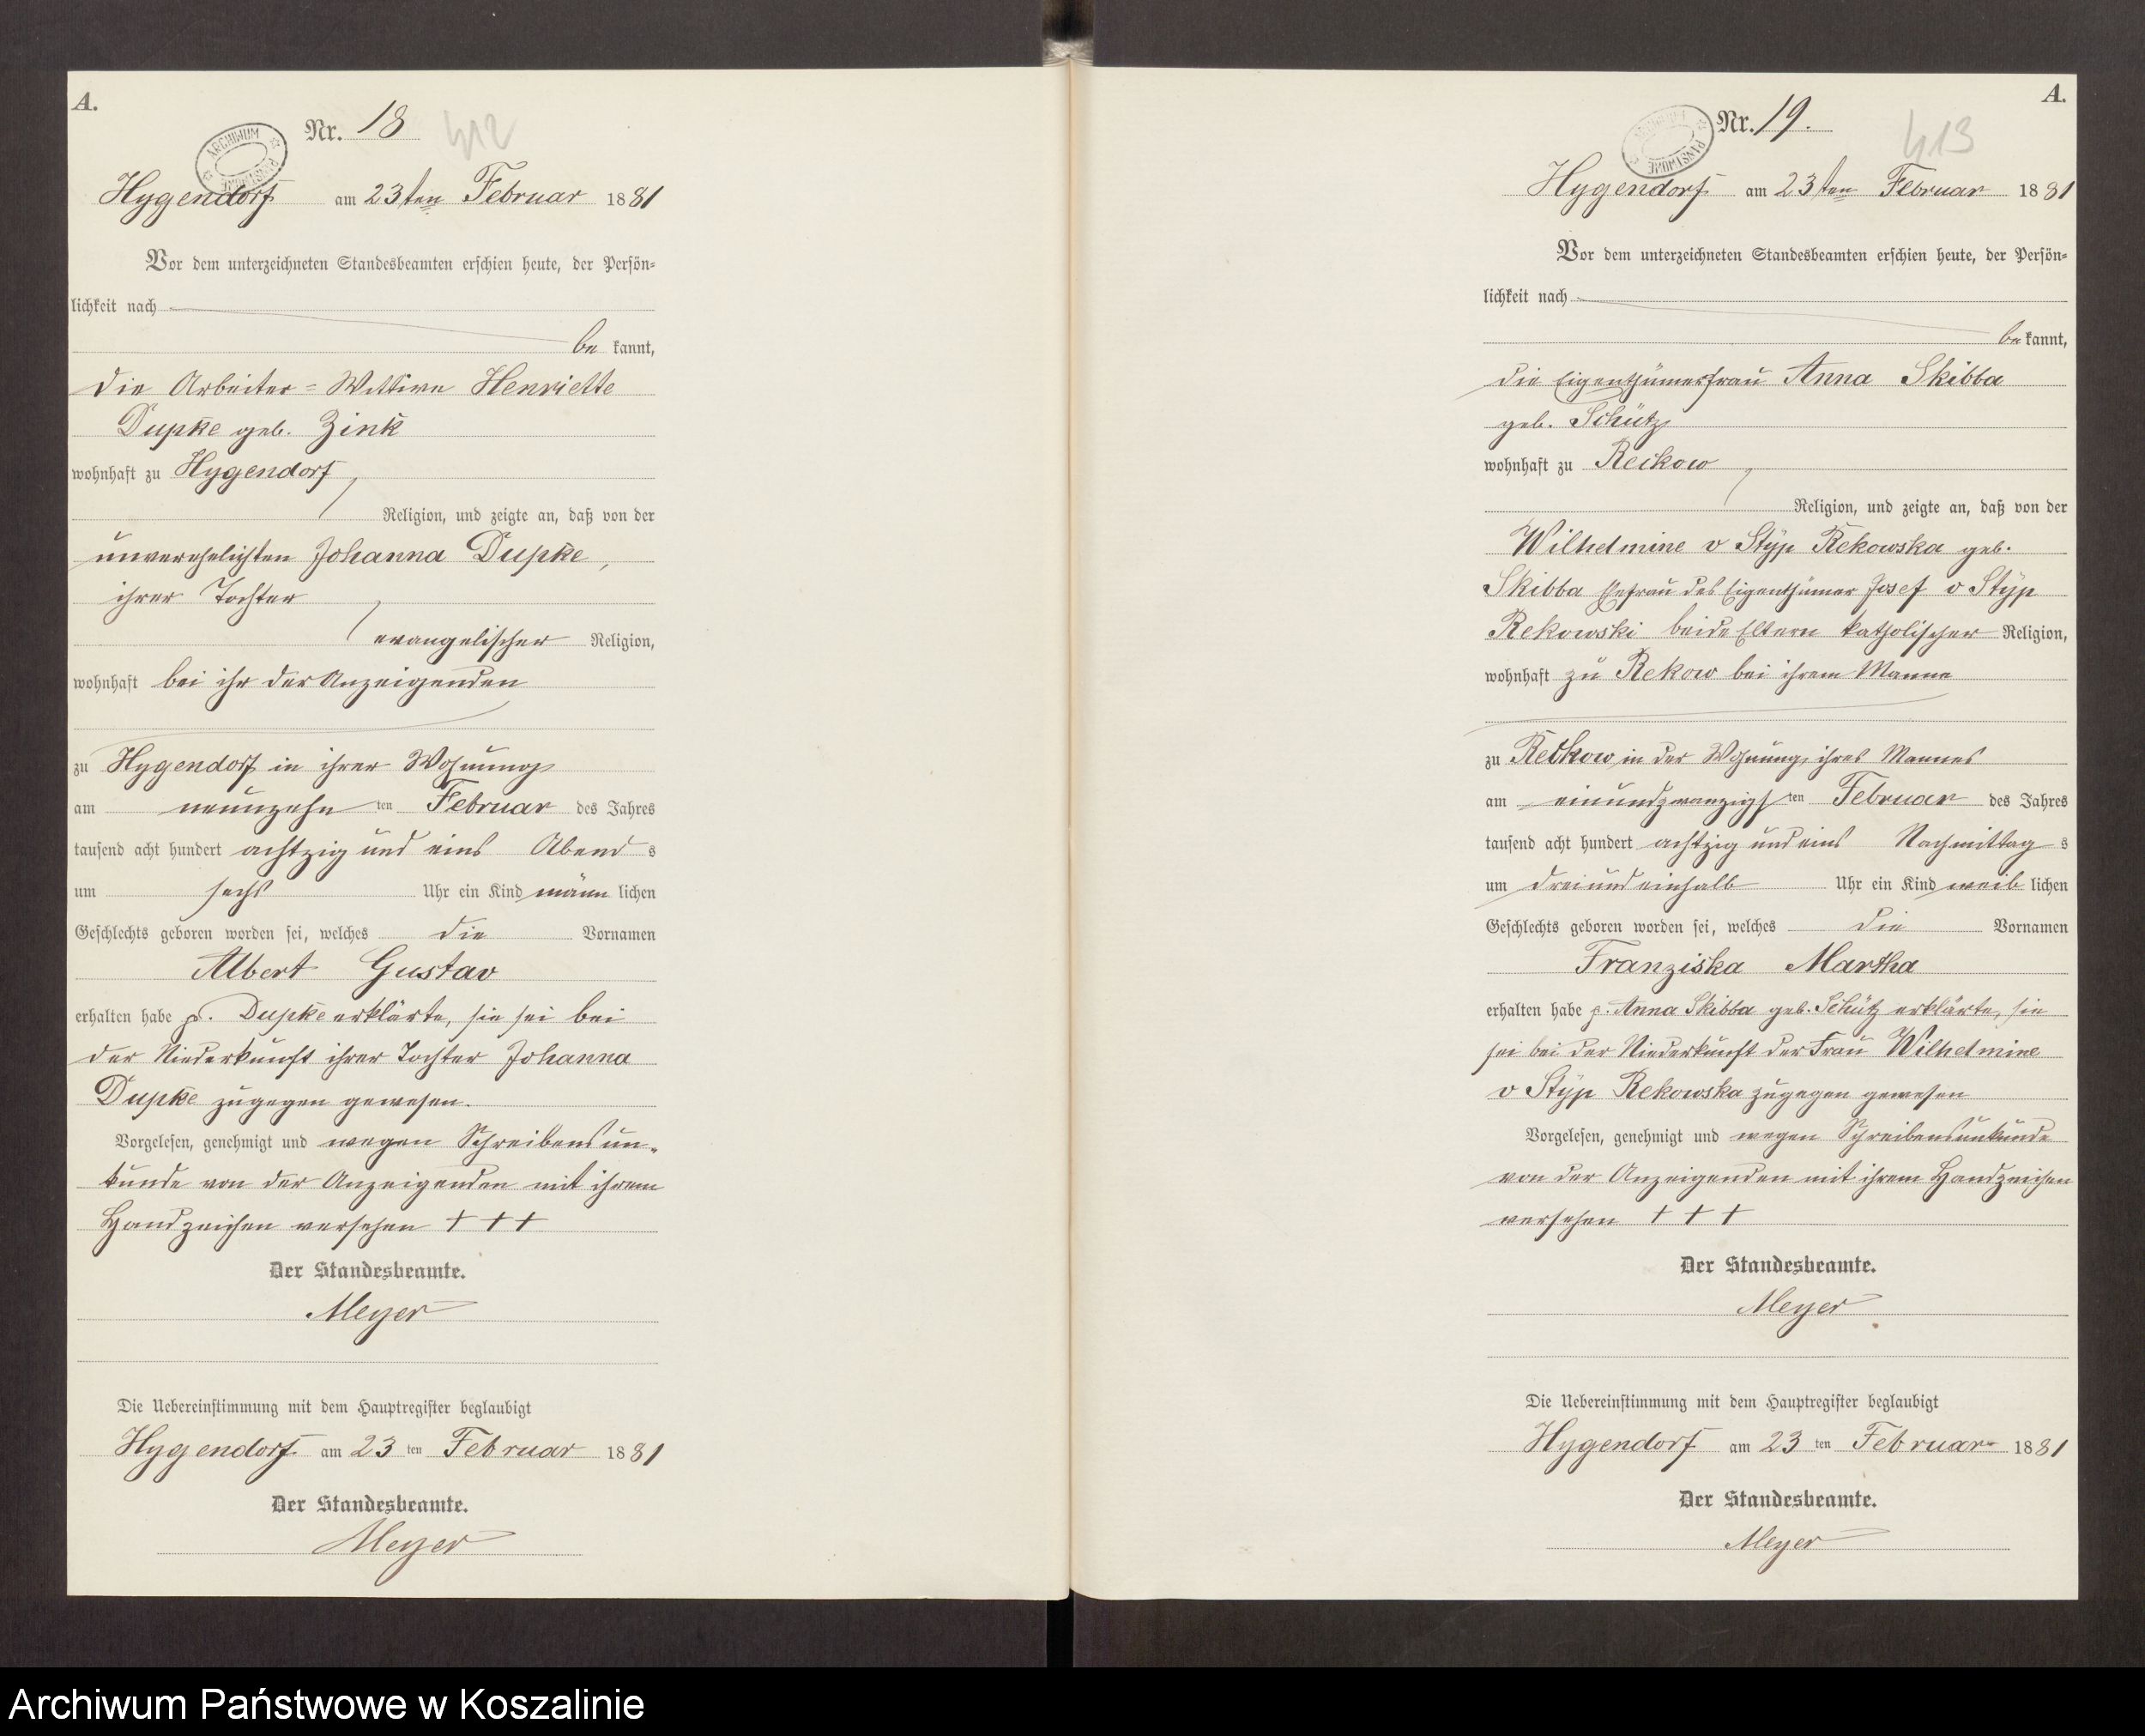 A.
ARCHIWUM PAŃSTWOWE
Nr. 18
412
Hygendorf am 23ten Februar 1881
Vor dem unterzeichneten Standesbeamten erschien heute, der Persön=
lichkeit nach
be kannt,
die Arbeiter=Wittwe Henriette
Dupke geb. Zink
wohnhaft zu Hygendorf
Religion, und zeigte an, daß von der
unverehelichten Johanna Dupke,
ihrer Tochter
evangelischer Religion,
wohnhaft bei ihr der Anzeigenden
zu Hygendorf in ihrer Wohnung
am neunzehn ten Februar des Jahres
tausend acht hundert achtzig und eins Abend s
um sechs Uhr ein Kind männ lichen
Geschlechts geboren worden sei, welches die Vornamen
Albert Gustav
erhalten habe p. Dupke erklärte, sie sei bei
der Niederkunft ihrer Tochter Johanna
Dupke zugegen gewesen.
Vorgelesen, genehmigt und wegen Schreibensun-
kunde von der Anzeigenden mit ihrem
Handzeichen versehen + + +
Der Standesbeamte.
Meyer
Die Uebereinstimmung mit dem Hauptregister beglaubigt
Hygendorf am 23 ten Februar 1881
Der Standesbeamte.
Meyer
A.
ARCHIWUM PAŃSTWOWE
Nr. 19.
413
Hygendorf am 23ten Februar 1881
Vor dem unterzeichneten Standesbeamten erschien heute, der Persön=
lichkeit nach
be kannt,
die Eigenthümerfrau Anna Skibba
geb. Schütz
wohnhaft zu Reckow
Religion, und zeigte an, daß von der
Wilhelmine v Styp Rekowska geb.
Skibba Ehefrau des Eigenthümer Josef v Styp
Rekowski beide Eltern katholischer Religion,
wohnhaft zu Rekow bei ihrem Manne
zu Reckow in der Wohnung ihres Mannes
am einundzwanzigs ten Februar des Jahres
tausend acht hundert achtzig und eins Nachmittag s
um dreiundeinhalb Uhr ein Kind weib lichen
Geschlechts geboren worden sei, welches die Vornamen
Franziska Martha
erhalten habe p. Anna Skibba geb. Schütz erklärte, sie
sei bei der Niederkunft der Frau Wilhelmine
v Styp Rekowska zugegen gewesen
Vorgelesen, genehmigt und wegen Schreibensunkunde
von der Anzeigenden mit ihrem Handzeichen
versehen + + +
Der Standesbeamte.
Meyer
Die Uebereinstimmung mit dem Hauptregister beglaubigt
Hygendorf am 23 ten Februar 1881
Der Standesbeamte.
Meyer
Archiwum Państwowe w Koszalinie